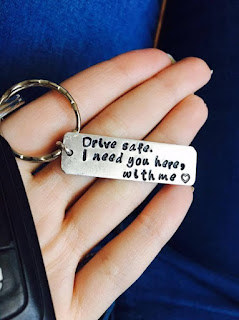 Drive safe.
I need you here,
with me ♡